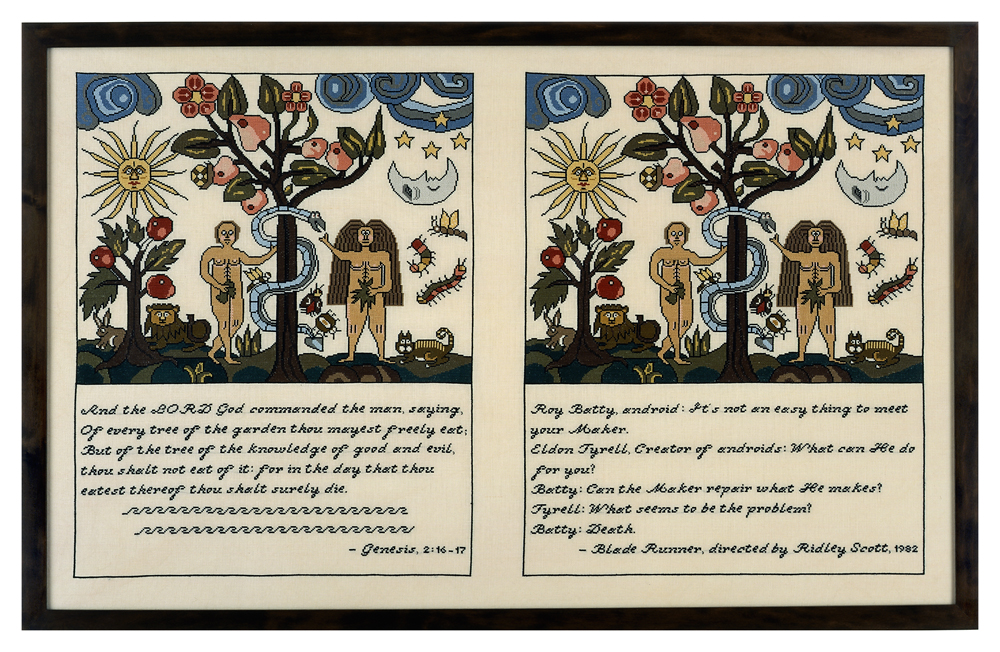 And the LORD God commanded the man, saying,
Of every tree of the garden thou mayest freely eat:
But of the tree of the knowledge of good and evil,
thou shalt not eat of it: for in the day that thou
eatest thereof thou shalt surely die.
- Genesis, 2:16-17
Roy Batty, android: It's not an easy thing to meet
your Maker.
Eldon Tyrell, Creator of androids: What can He do
for you?
Batty: Can the Maker repair what He makes?
Tyrell: What seems to be the problem?
Batty: Death.
- Blade Runner, directed by Ridley Scott, 1982